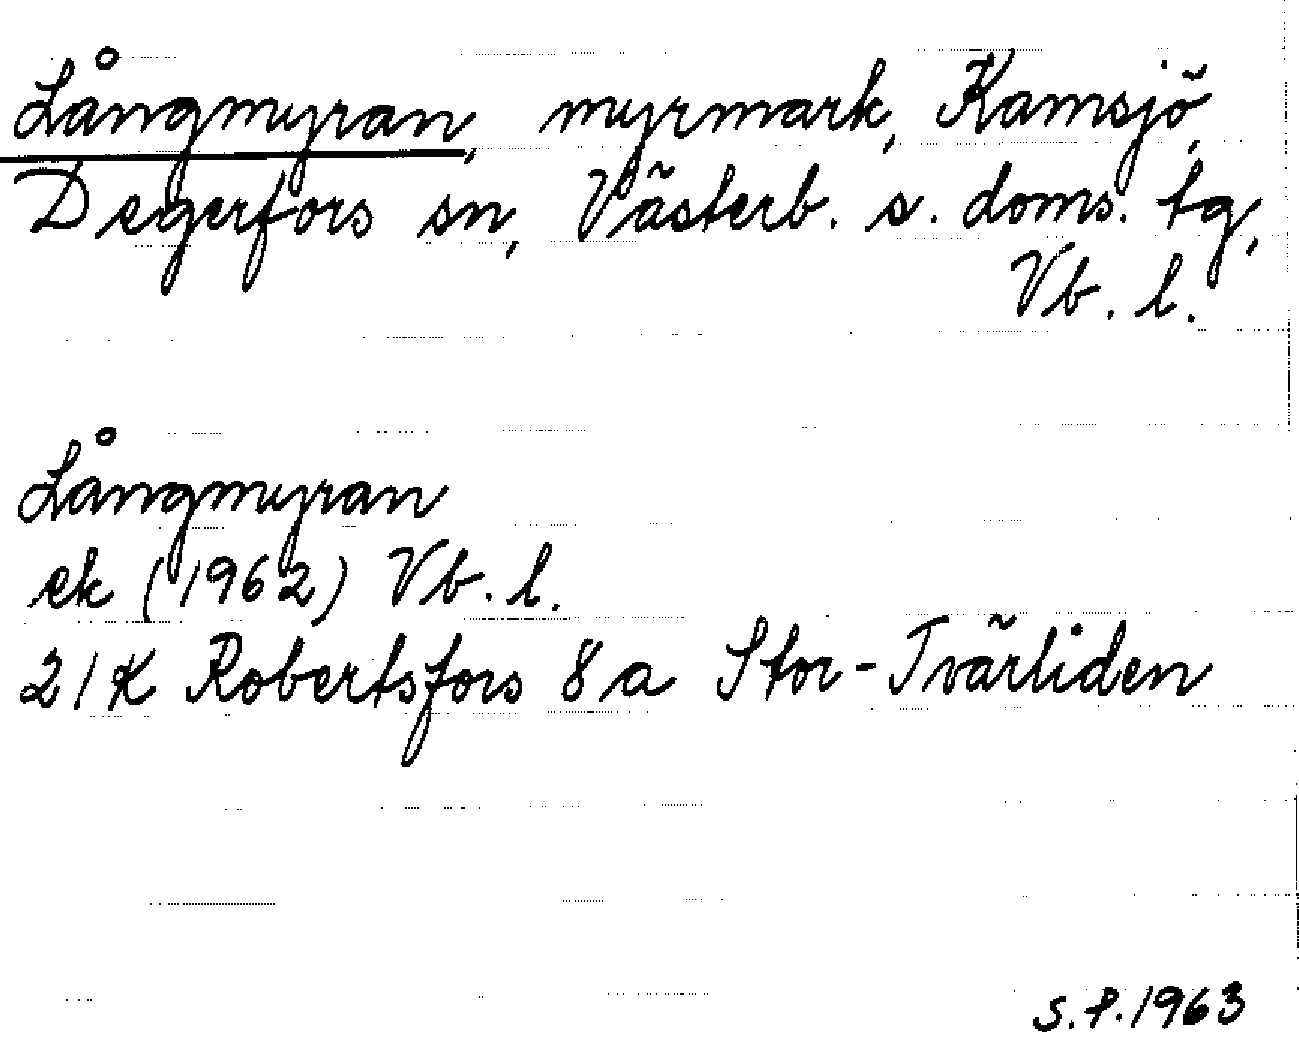 Långmyran, myrmark, Kamsjö,
Degerfors sn, Västerb. s. doms. tg,
Vb. l.
Långmyran
ek (1962) Vb. l.
21K Robertsfors 8a Stor-Tvärliden
S.P. 1963